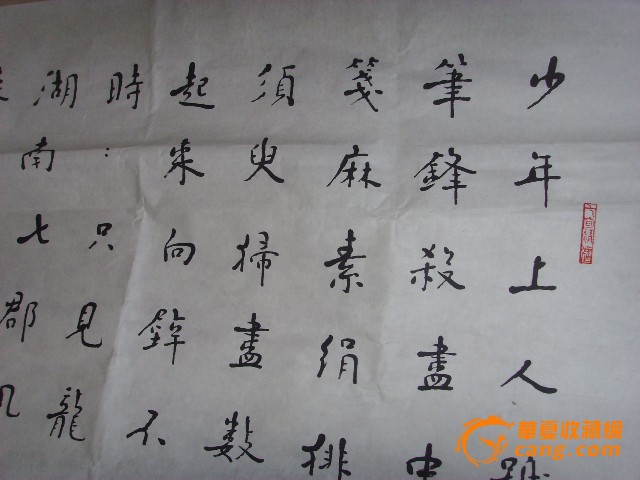 少年上人號
筆鋒殺盡中
箋麻素絹排
須臾掃盡數
起來向不
時：只見龍
湖南七郡凡
華夏收藏網
cang.com